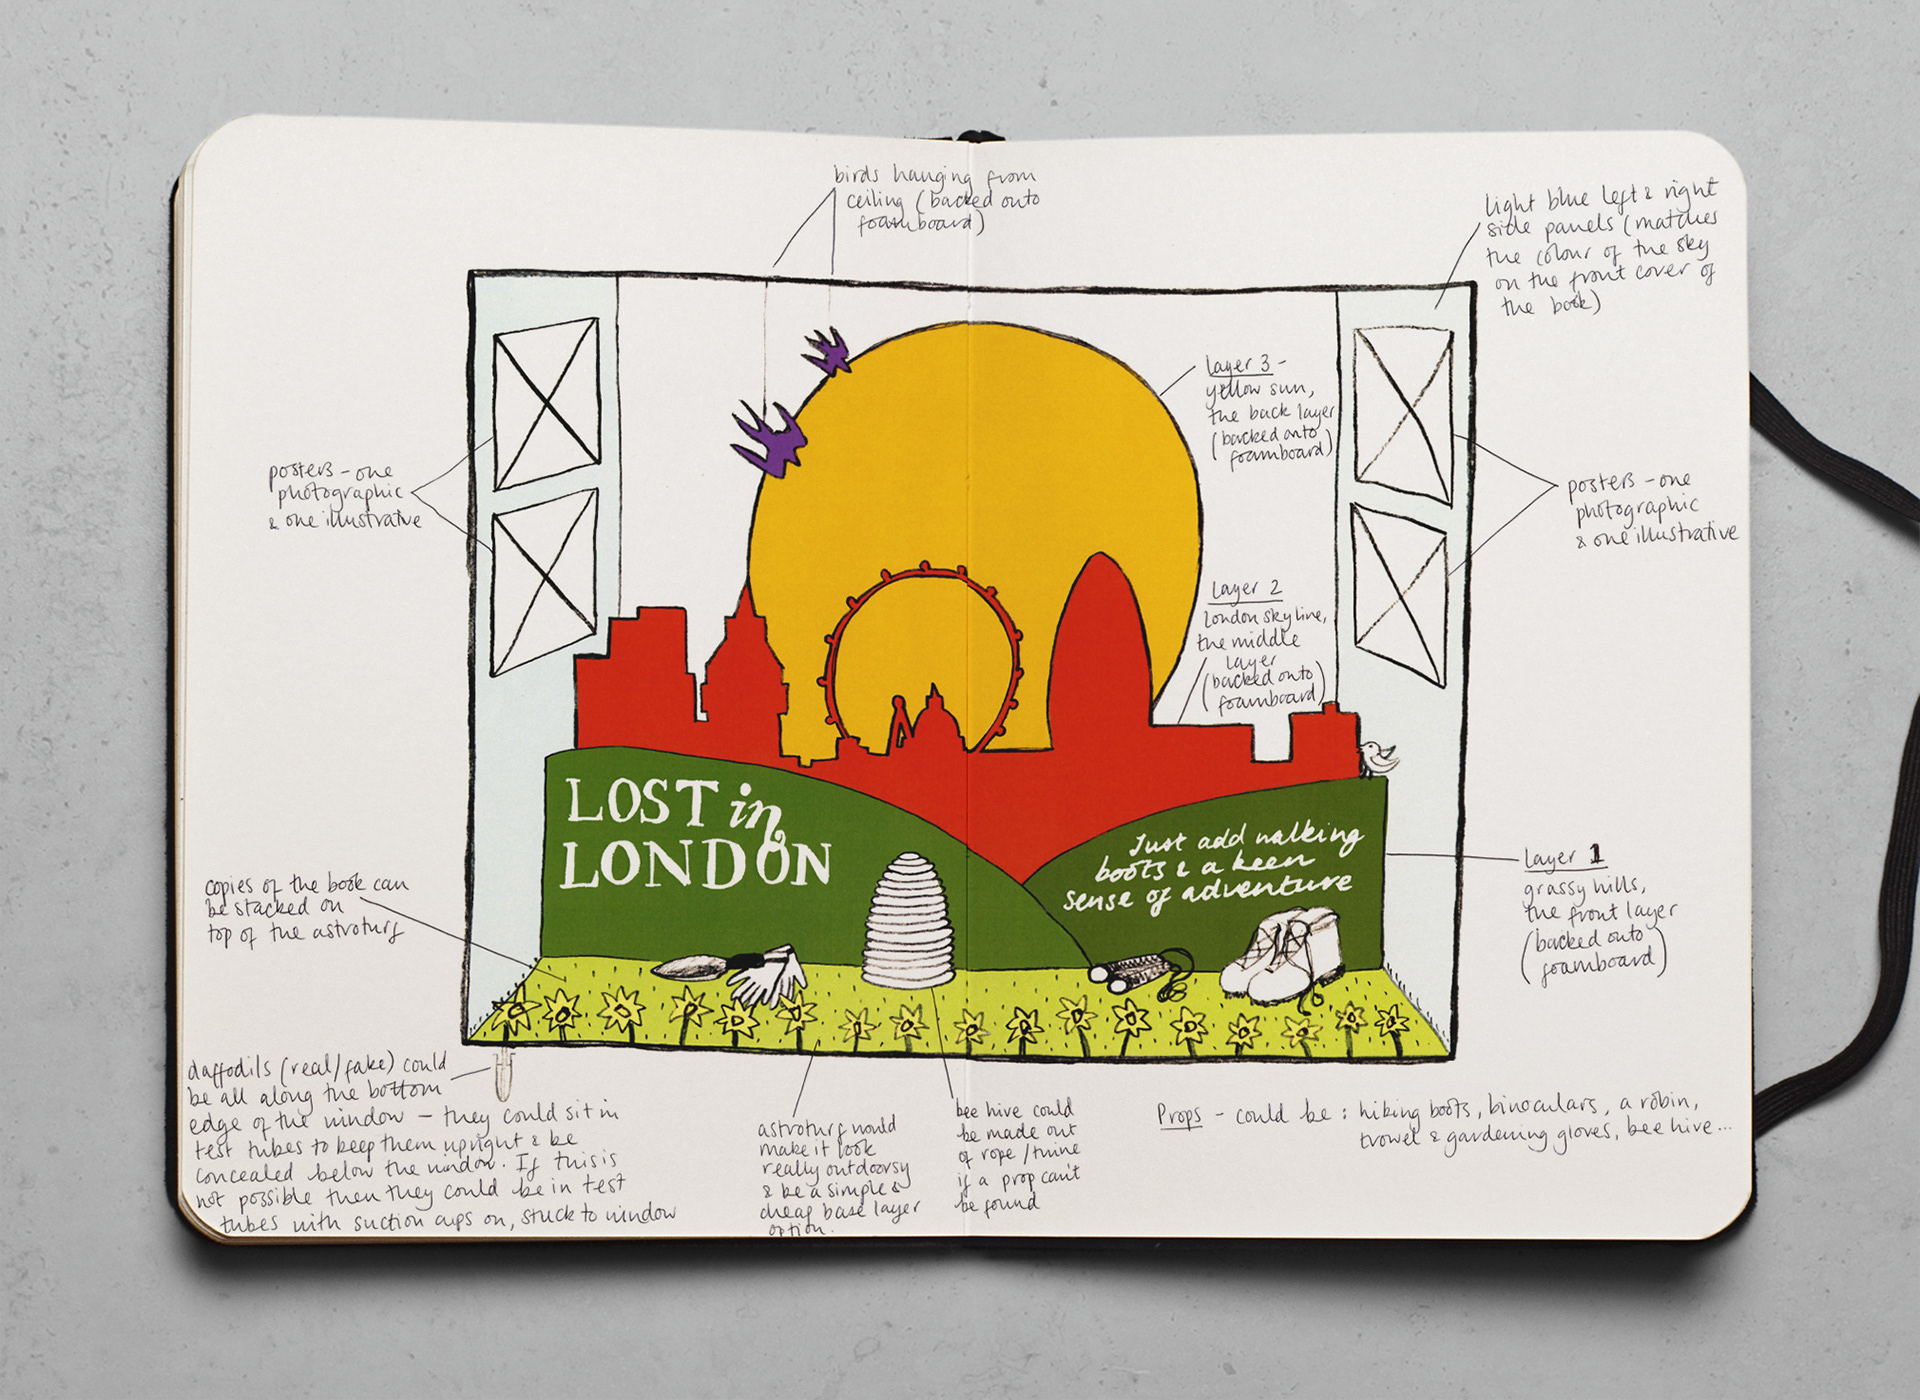 birds hanging from
ceiling (backed onto
foamboard)
light blue left & right
side panels (matches
the colour of the sky
on the front cover of
the book)
Layer 3 -
yellow sun,
the back layer
(backed onto
foamboard)
posters - one
photographic
& one illustrative
posters - one
photographic
& one illustrative
Layer 2
london skyline,
the middle
layer
(backed onto
foamboard)
LOST in
LONDON
Just add walking
boots & a keen
sense of adventure
Layer 1
grassy hills,
the front layer
(backed onto
foamboard)
copies of the book can
be stacked on
top of the astroturf
daffodils (real/fake) could
be all along the bottom
edge of the window - they could sit in
test tubes to keep them upright & be
concealed below the window. If this is
not possible then they could be in test
tubes with suction cups on, stuck to window
astroturf would
make it look
really outdoorsy
& be a simple &
cheap base layer
option.
bee hive could
be made out
of rope / twine
if a prop can't
be found
Props - could be : hiking boots, binoculars, a robin,
trowel & gardening gloves, bee hive...